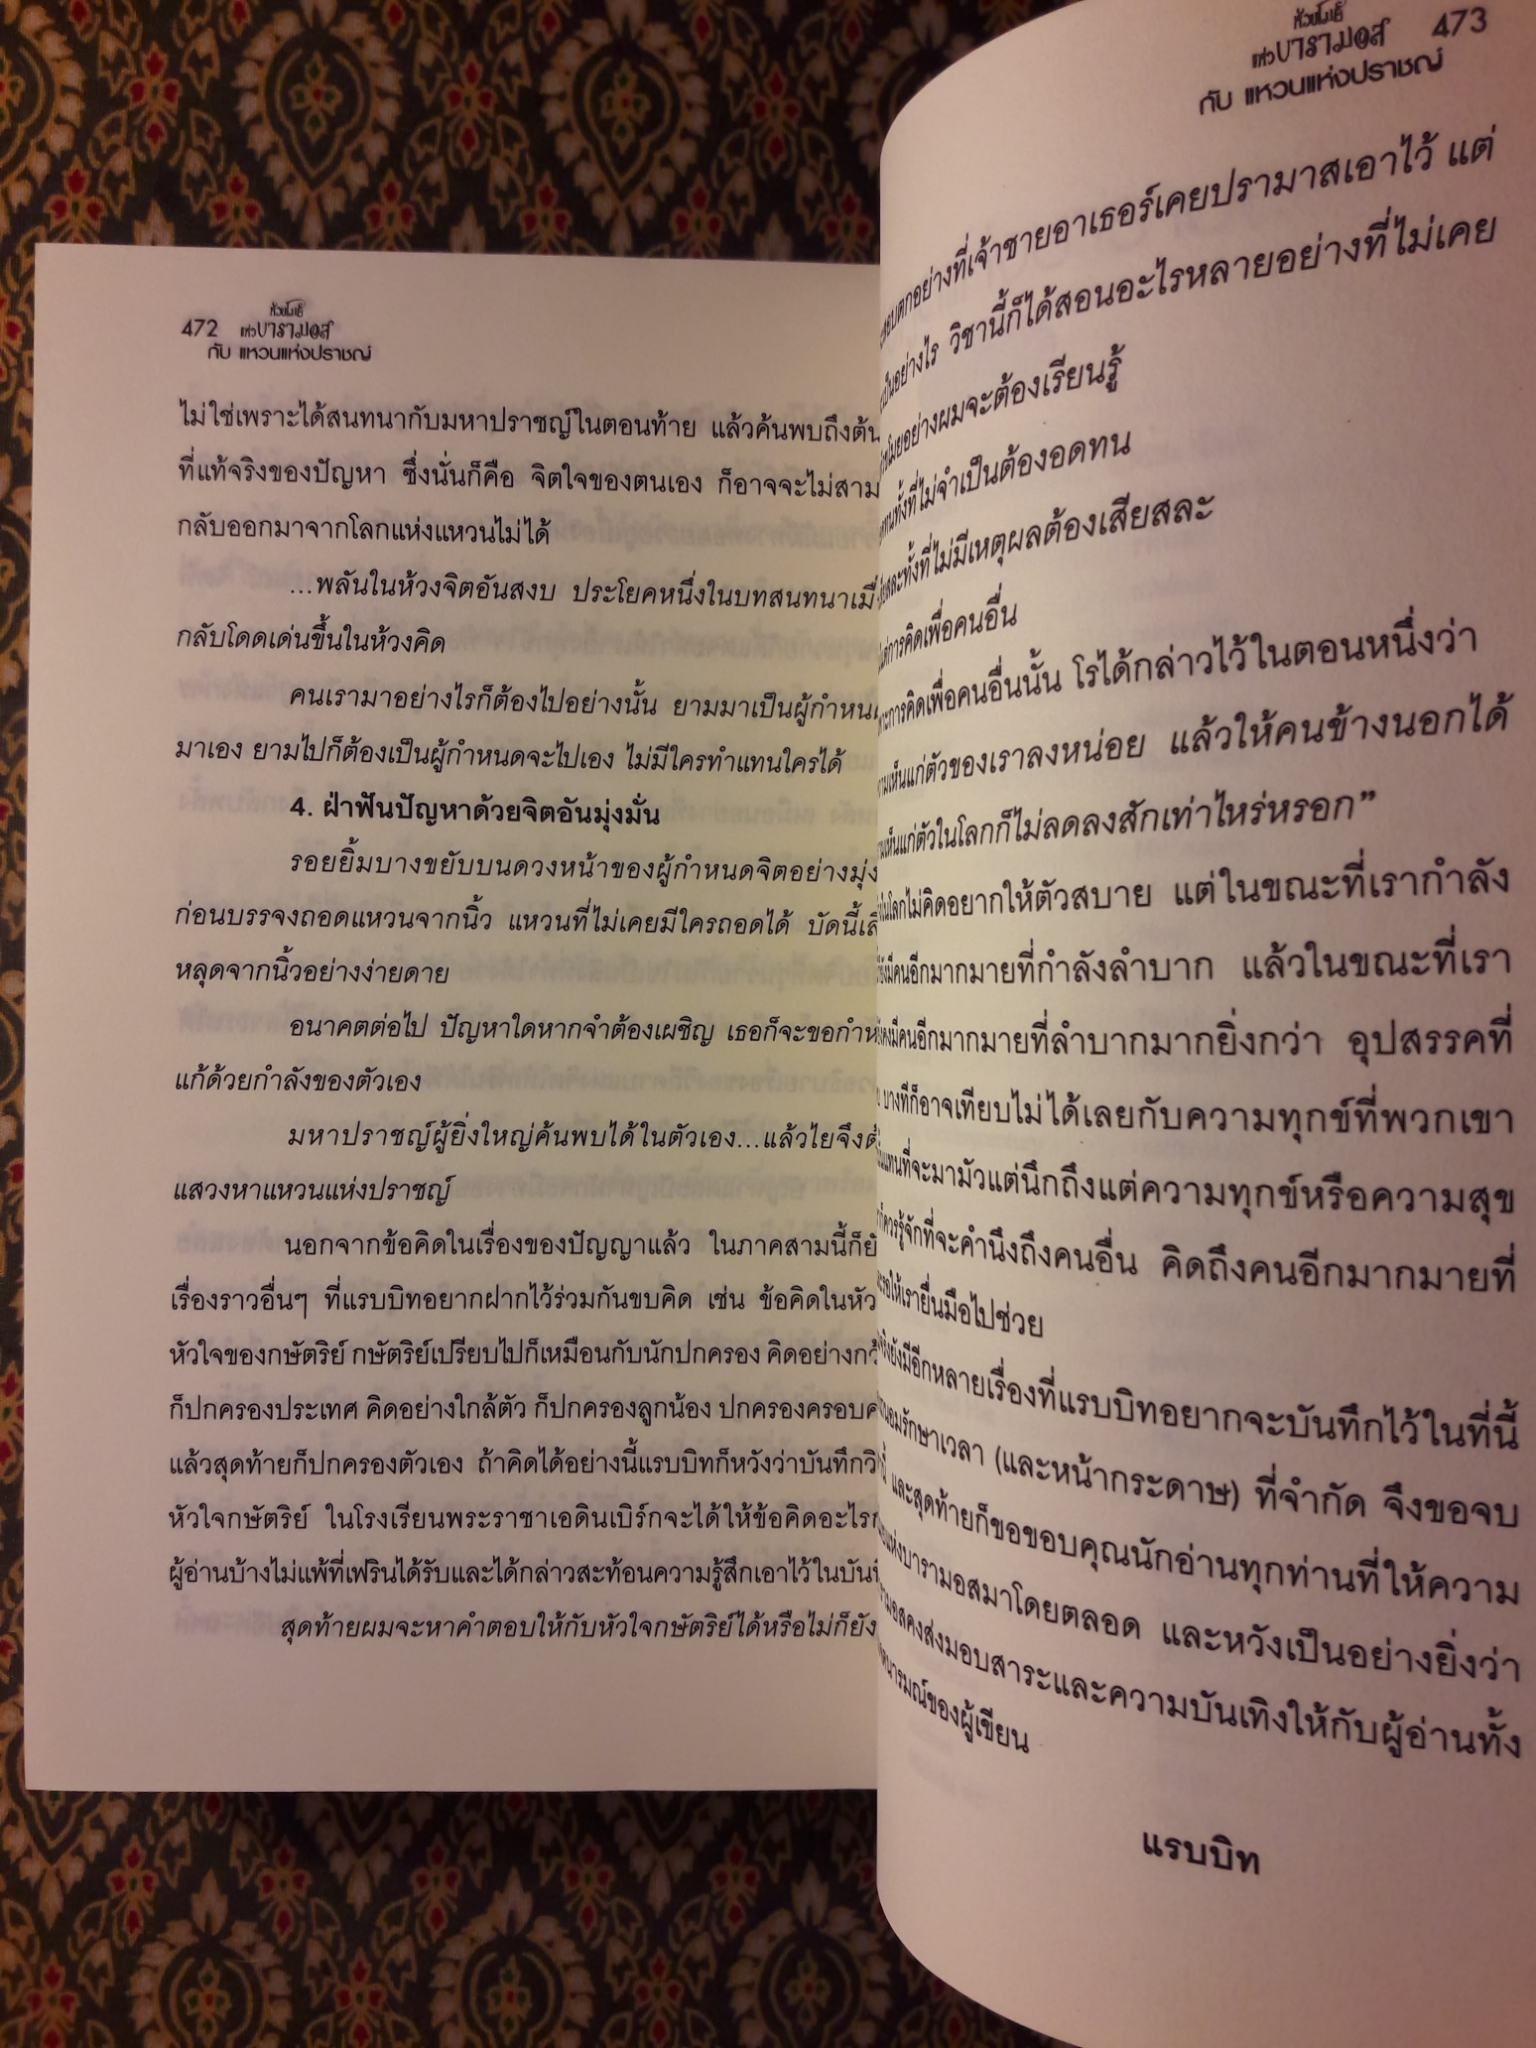 472 หัวขโมย
แห่งบารามอส
กับ แหวนแห่งปราชญ์
ไม่ใช่เพราะได้สนทนากับมหาปราชญ์ในตอนท้าย แล้วค้นพบถึงต้น
ที่แท้จริงของปัญหา ซึ่งนั่นก็คือ จิตใจของตนเอง ก็อาจจะไม่สาม
กลับออกมาจากโลกแห่งแหวนไม่ได้
...พลันในห้วงจิตอันสงบ ประโยคหนึ่งในบทสนทนาเมื่
กลับโดดเด่นขึ้นในห้วงคิด
คนเรามาอย่างไรก็ต้องไปอย่างนั้น ยามมาเป็นผู้กำหนด
มาเอง ยามไปก็ต้องเป็นผู้กำหนดจะไปเอง ไม่มีใครทำแทนใครได้
4. ฝ่าฟันปัญหาด้วยจิตอันมุ่งมั่น
รอยยิ้มบางขยับบนดวงหน้าของผู้กำหนดจิตอย่างมุ่ง
ก่อนบรรจงถอดแหวนจากนิ้ว แหวนที่ไม่เคยมีใครถอดได้ บัดนี้
หลุดจากนิ้วอย่างง่ายดาย
อนาคตต่อไป ปัญหาใดหากจำต้องเผชิญ เธอก็จะขอกำห
แก้ด้วยกำลังของตัวเอง
มหาปราชญ์ผู้ยิ่งใหญ่ค้นพบได้ในตัวเอง...แล้วไยจึงต้
แสวงหาแหวนแห่งปราชญ์
นอกจากข้อคิดในเรื่องของปัญญาแล้ว ในภาคสามนี้ก็ยั
เรื่องราวอื่นๆ ที่แรบบิทอยากฝากไว้ร่วมกันขบคิด เช่น ข้อคิดในหัว
หัวใจของกษัตริย์ กษัตริย์เปรียบไปก็เหมือนกับนักปกครอง คิดอย่างกว้
ก็ปกครองประเทศ คิดอย่างใกล้ตัว ก็ปกครองลูกน้อง ปกครองครอบค
แล้วสุดท้ายก็ปกครองตัวเอง ถ้าคิดได้อย่างนี้แรบบิทก็หวังว่าบันทึกวิ
หัวใจกษัตริย์ ในโรงเรียนพระราชาเอดินเบิร์กจะได้ให้ข้อคิดอะไร
ผู้อ่านบ้างไม่แพ้ที่เฟรินได้รับและได้กล่าวสะท้อนความรู้สึกเอาไว้ในบันทึ
สุดท้ายผมจะหาคำตอบให้กับหัวใจกษัตริย์ได้หรือไม่ก็ยัง
หัวขโมย
แห่งบารามอส 473
กับ แหวนแห่งปราชญ์
สอบตกอย่างที่เจ้าชายอาเธอร์เคยปรามาสเอาไว้ แต่
เป็นอย่างไร วิชานี้ก็ได้สอนอะไรหลายอย่างที่ไม่เคย
โมยอย่างผมจะต้องเรียนรู้
ทนทั้งที่ไม่จำเป็นต้องอดทน
สละทั้งที่ไม่มีเหตุผลต้องเสียสละ
การคิดเพื่อคนอื่น
การคิดเพื่อคนอื่นนั้น โรได้กล่าวไว้ในตอนหนึ่งว่า
ามเห็นแก่ตัวของเราลงหน่อย แล้วให้คนข้างนอกได้
ามเห็นแก่ตัวในโลกก็ไม่ลดลงสักเท่าไหร่หรอก”
ในโลกไม่คิดอยากให้ตัวสบาย แต่ในขณะที่เรากำลัง
ยังมีคนอีกมากมายที่กำลังลำบาก แล้วในขณะที่เรา
คงมีคนอีกมากมายที่ลำบากมากยิ่งกว่า อุปสรรคที่
บางทีก็อาจเทียบไม่ได้เลยกับความทุกข์ที่พวกเขา
แทนที่จะมามัวแต่นึกถึงแต่ความทุกข์หรือความสุข
ควรรู้จักที่จะคำนึงถึงคนอื่น คิดถึงคนอีกมากมายที่
รอให้เรายื่นมือไปช่วย
ยังมีอีกหลายเรื่องที่แรบบิทอยากจะบันทึกไว้ในที่นี้
นอมรักษาเวลา (และหน้ากระดาษ) ที่จำกัด จึงขอจบ
และสุดท้ายก็ขอขอบคุณนักอ่านทุกท่านที่ให้ความ
แห่งบารามอสมาโดยตลอด และหวังเป็นอย่างยิ่งว่า
ามอสคงส่งมอบสาระและความบันเทิงให้กับผู้อ่านทั้ง
ตนารมณ์ของผู้เขียน
แรบบิท